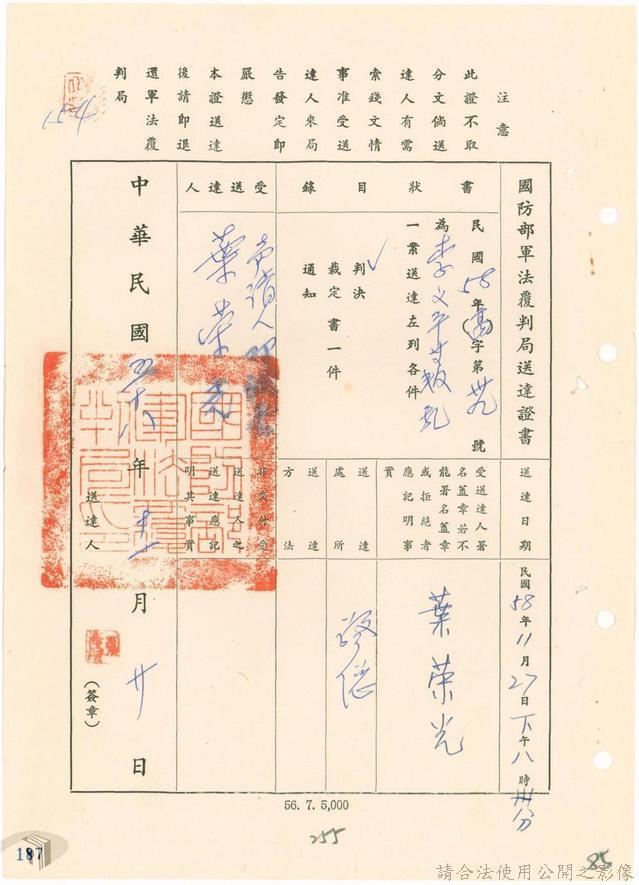 注意
此證不取
分文倘送
達人有需
索錢文情
事准受送
達人來局
告發定即
嚴懲
本證送達
後請即退
還軍法覆
判局
154
國防部軍法覆判局送達證書
送達日期
民國58年11月27日下午八時卅分
書狀目錄
民國58年(高)字第 號
為李文平等叛乱
一案送達左列各件
判決
裁定書一件
通知
受送達人署
名蓋章若不
能署名蓋章
或拒絕者
應記明事
實
葉荣光
送達處所
送達方法
受送達人
葉荣光
非交付受
送達人之
送達應記
明其事實
中華民國五十八年十一月廿日
送達人
(簽章)
56. 7. 5,000
255
187
85
請合法使用公開之影像